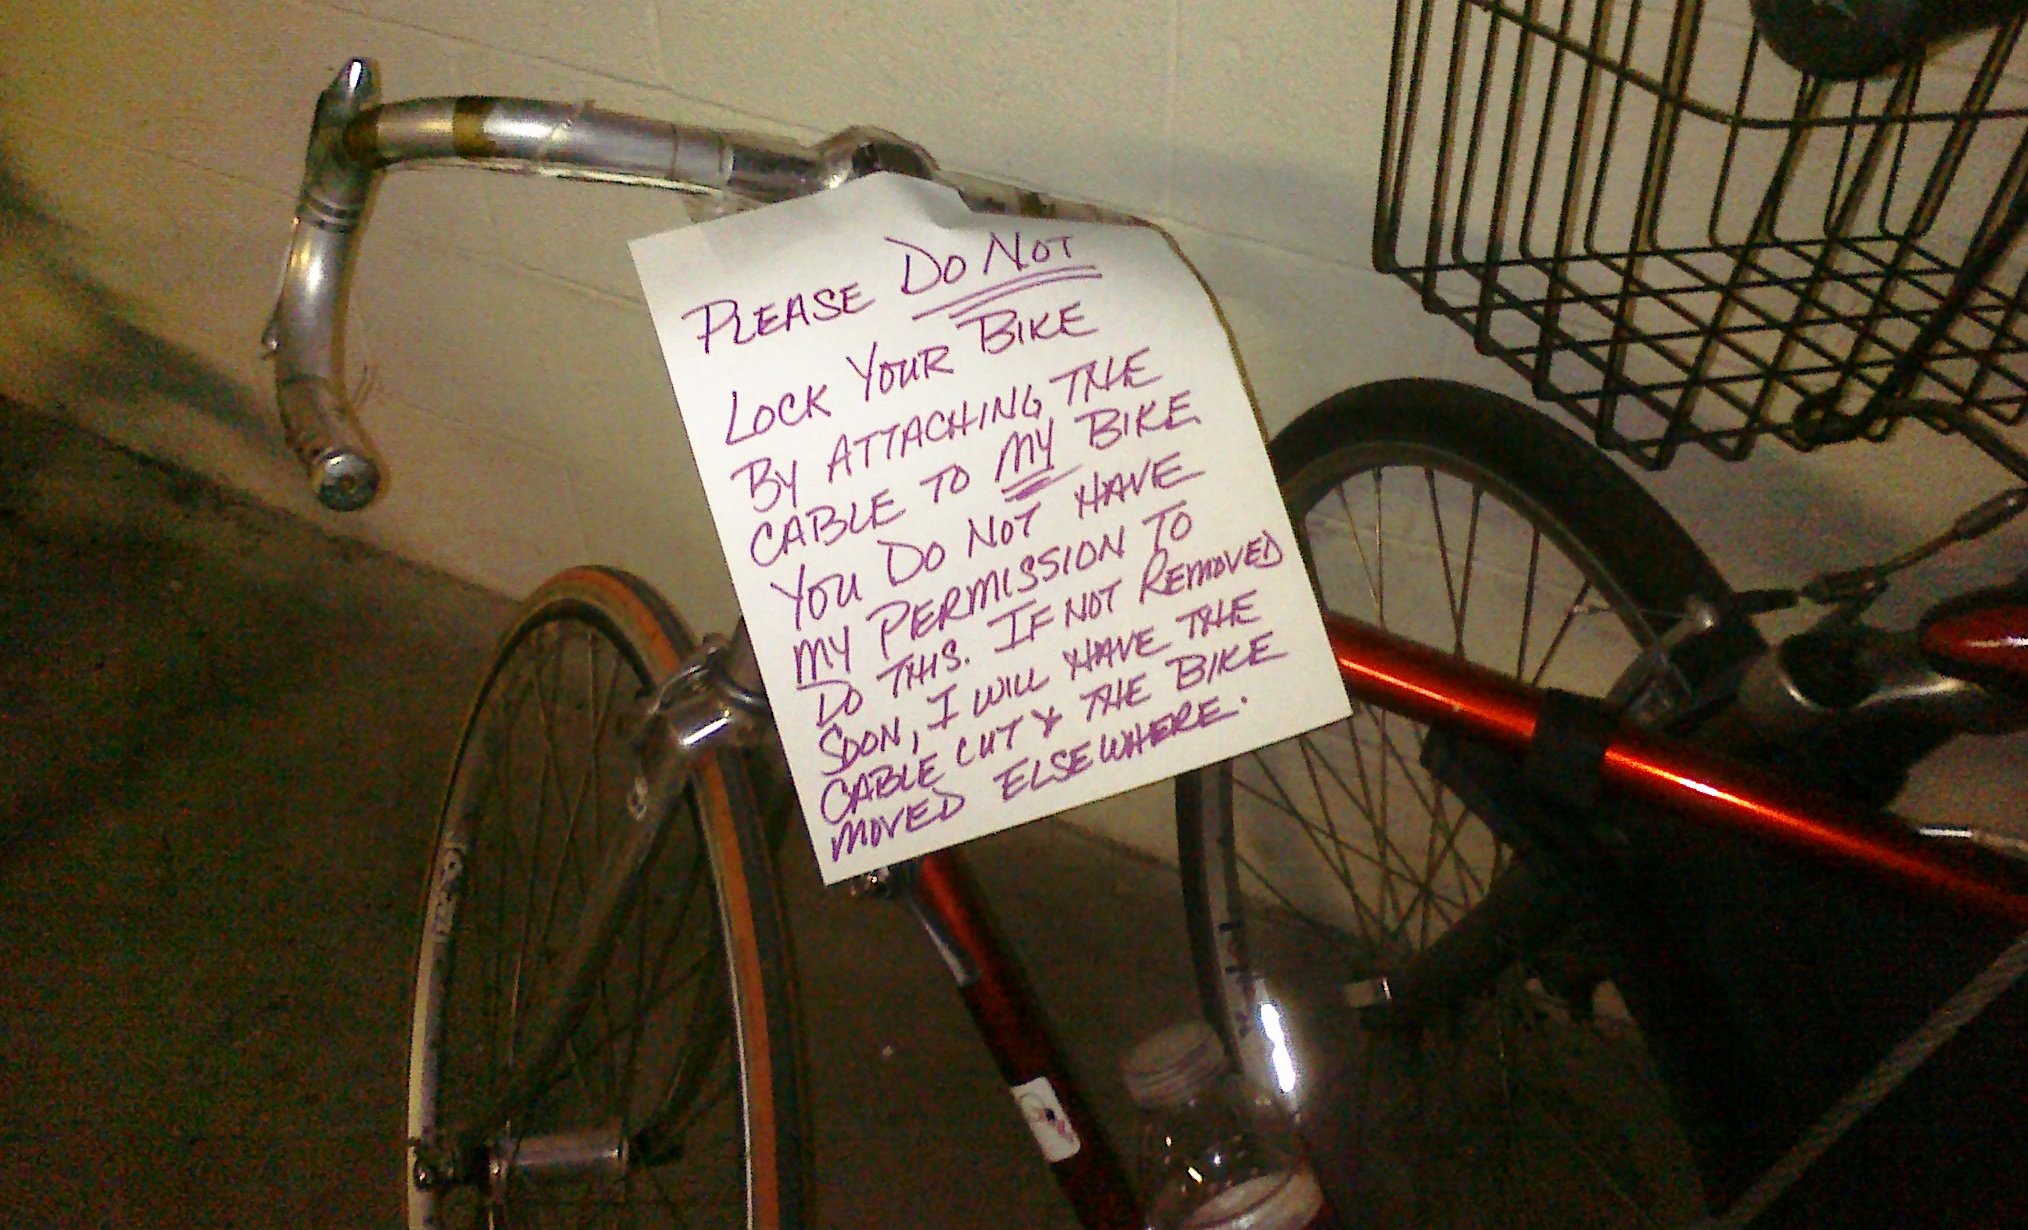 PLEASE DO NOT
LOCK YOUR BIKE
BY ATTACHING THE
CABLE TO MY BIKE
YOU DO NOT HAVE
MY PERMISSION TO
DO THIS. IF NOT REMOVED
SOON, I WILL HAVE THE
CABLE CUT & THE BIKE
MOVED ELSEWHERE.